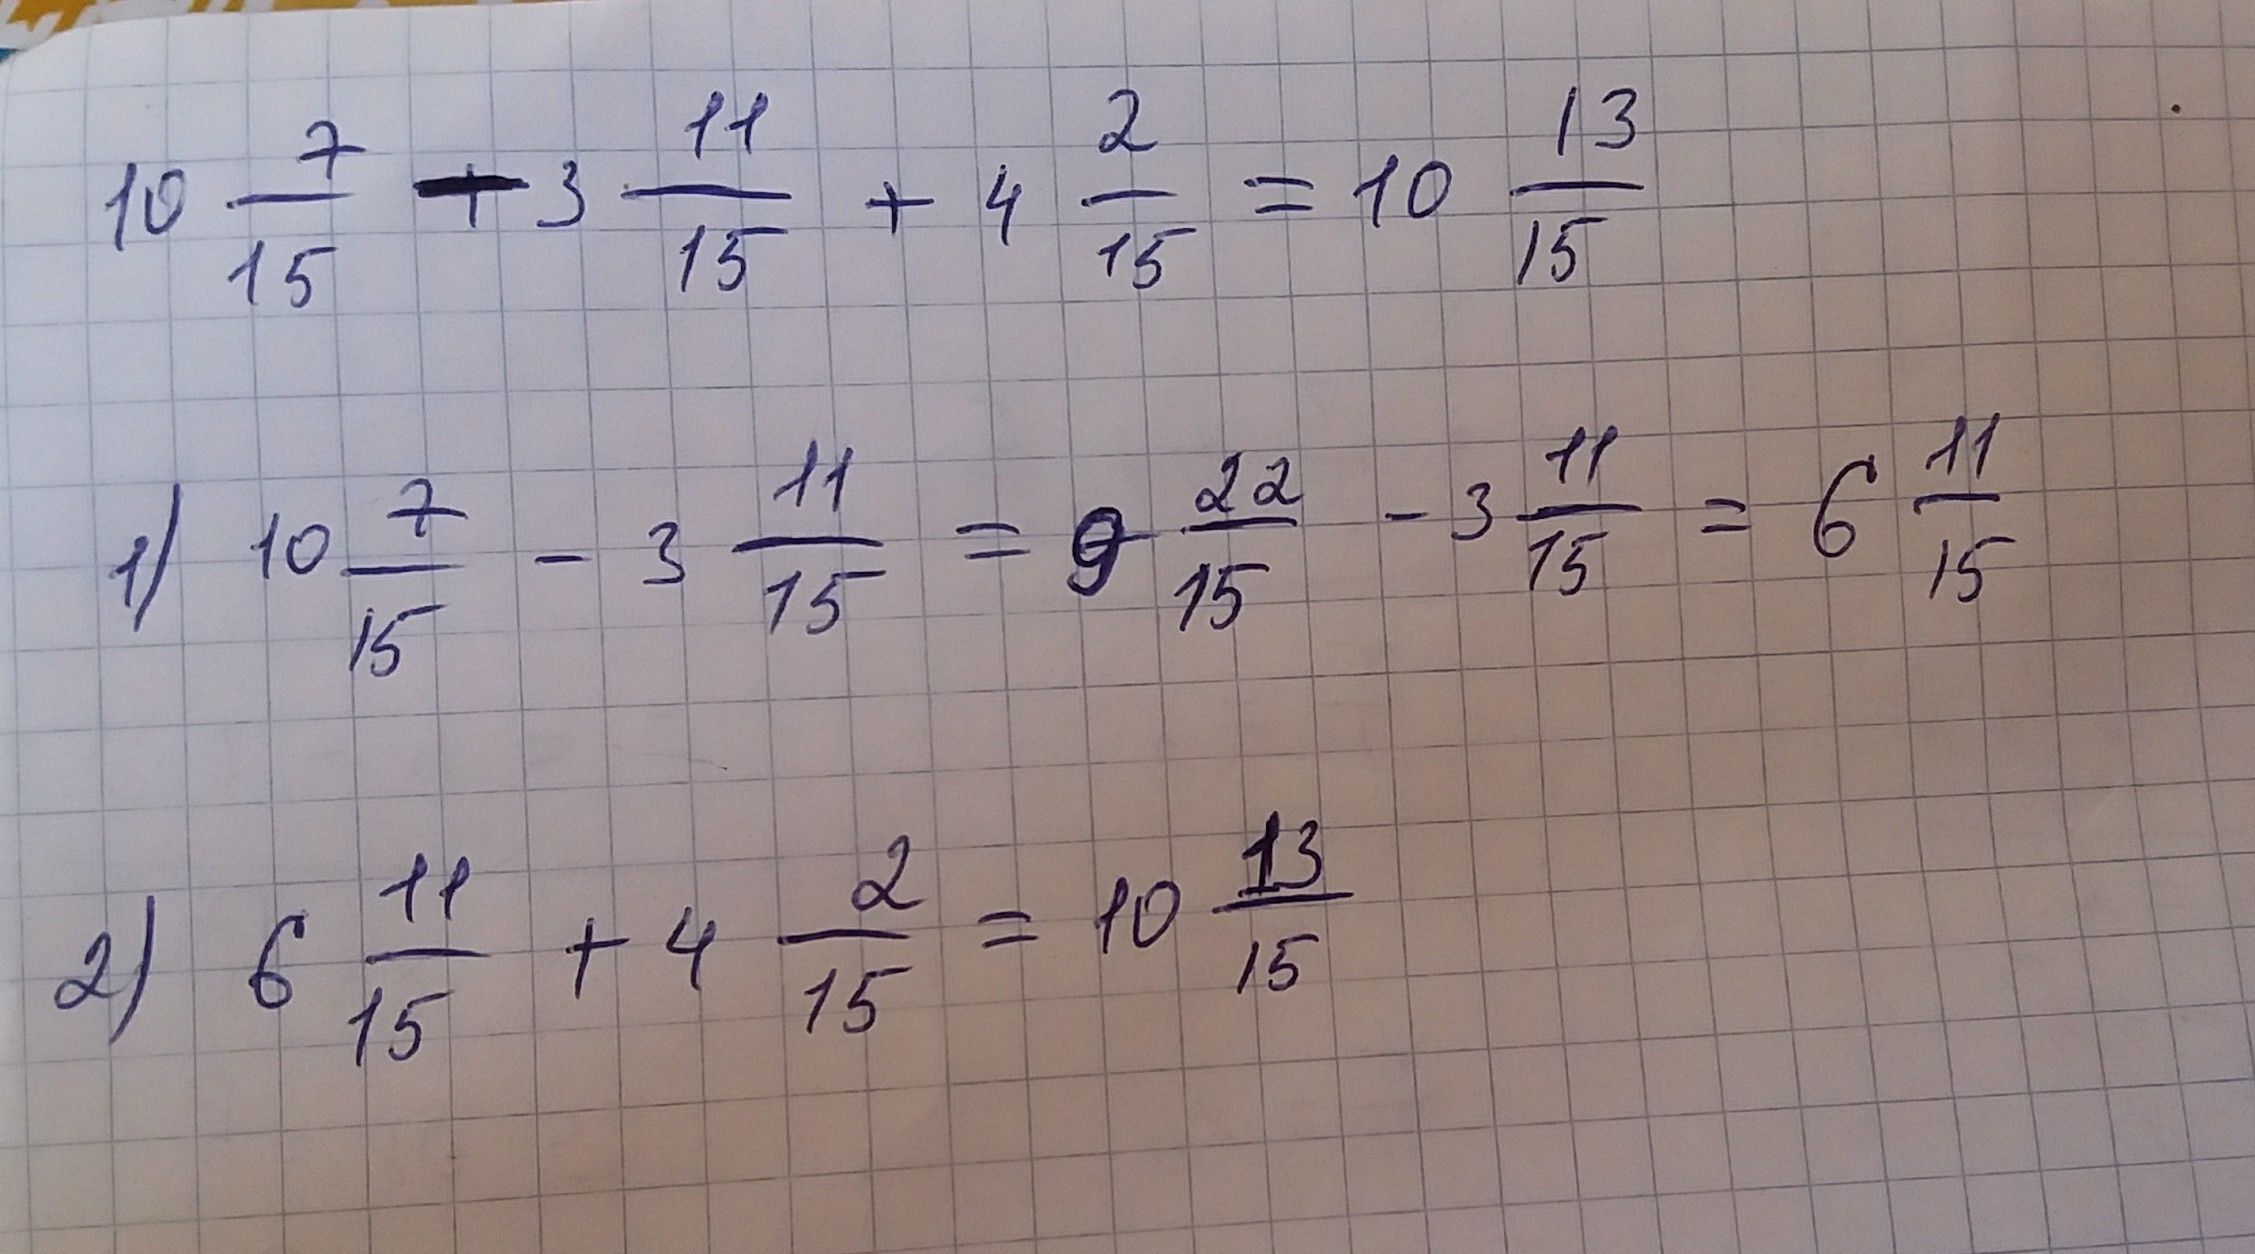 10 7/15 - 3 11/15 + 4 2/15 = 10 13/15
1) 10 7/15 - 3 11/15 = 9 22/15 - 3 11/15 = 6 11/15
2) 6 11/15 + 4 2/15 = 10 13/15